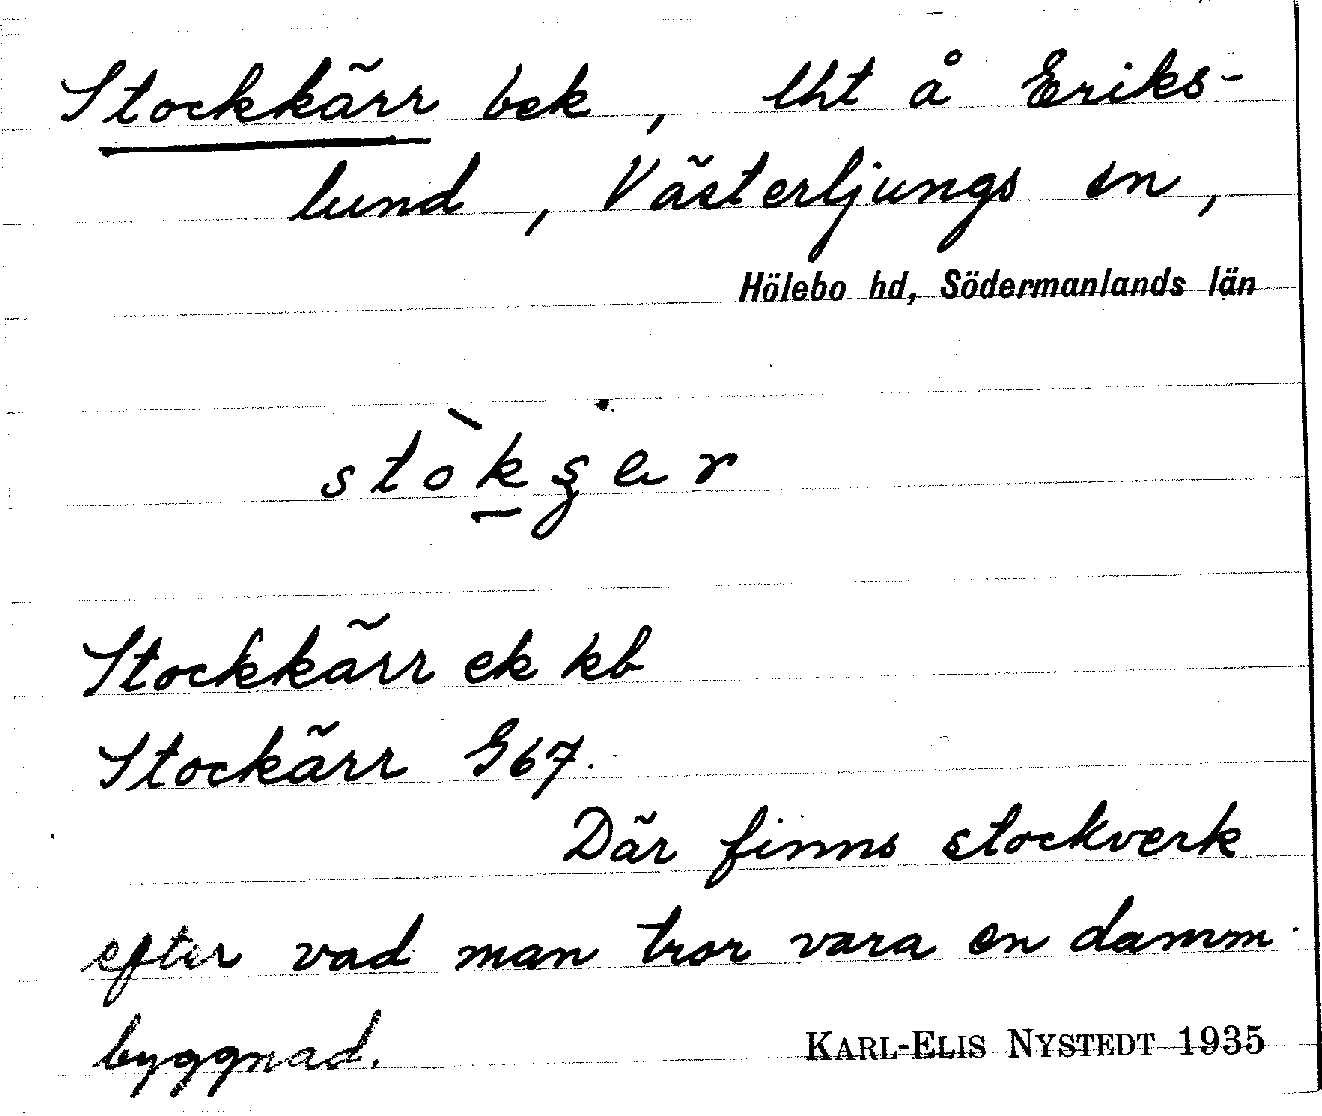 Stockkärr bek, lht å Eriks-
lund, Västerljungs sn,
Hölebo hd, Södermanlands län
Stockkärr ek kb
Stockärr G67.
Där finns stockverk
efter vad man tror vara en damm-
byggnad.
KARL-ELIS NYSTEDT 1935